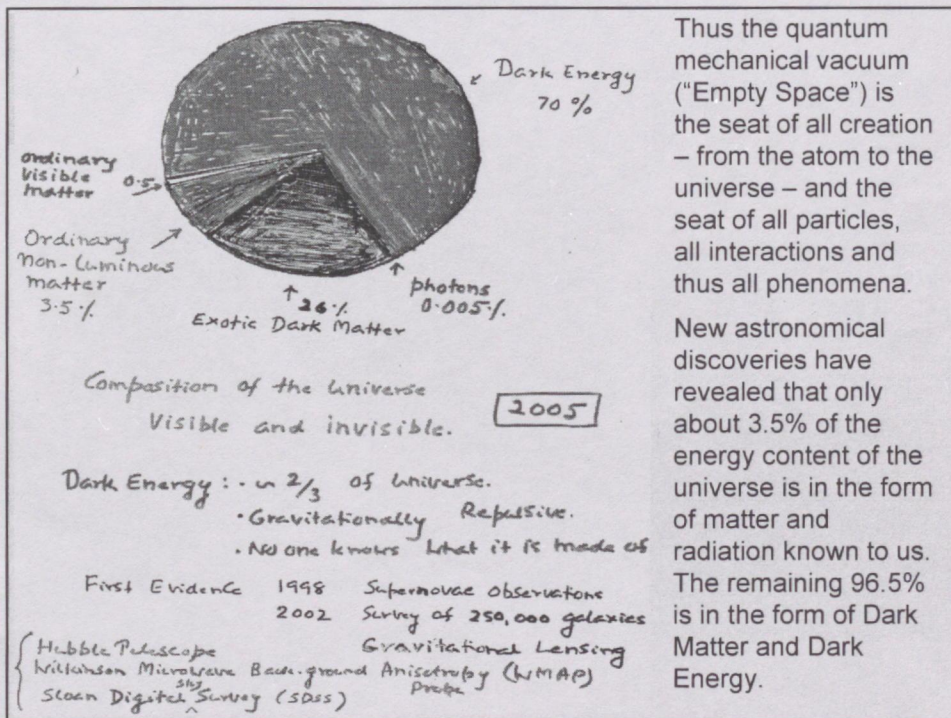 Dark Energy
70 %
ordinary
visible
matter
0.5
Ordinary
non-luminous
matter
3.5 %
26 %
Exotic Dark Matter
photons
0.005 %
Composition of the Universe
Visible and invisible.
2005
Dark Energy : · ~ 2/3 of Universe.
· Gravitationally Repulsive.
· No one knows what it is made of
First Evidence 1998 Supernovae Observations
2002 Survey of 250,000 galaxies
Gravitational Lensing
Hubble Telescope
Wilkinson Microwave Back-ground Anisotropy (WMAP)
Probe
Sloan Digital Sky Survey (SDSS)
Thus the quantum
mechanical vacuum
(“Empty Space”) is
the seat of all creation
– from the atom to the
universe – and the
seat of all particles,
all interactions and
thus all phenomena.
New astronomical
discoveries have
revealed that only
about 3.5% of the
energy content of the
universe is in the form
of matter and
radiation known to us.
The remaining 96.5%
is in the form of Dark
Matter and Dark
Energy.